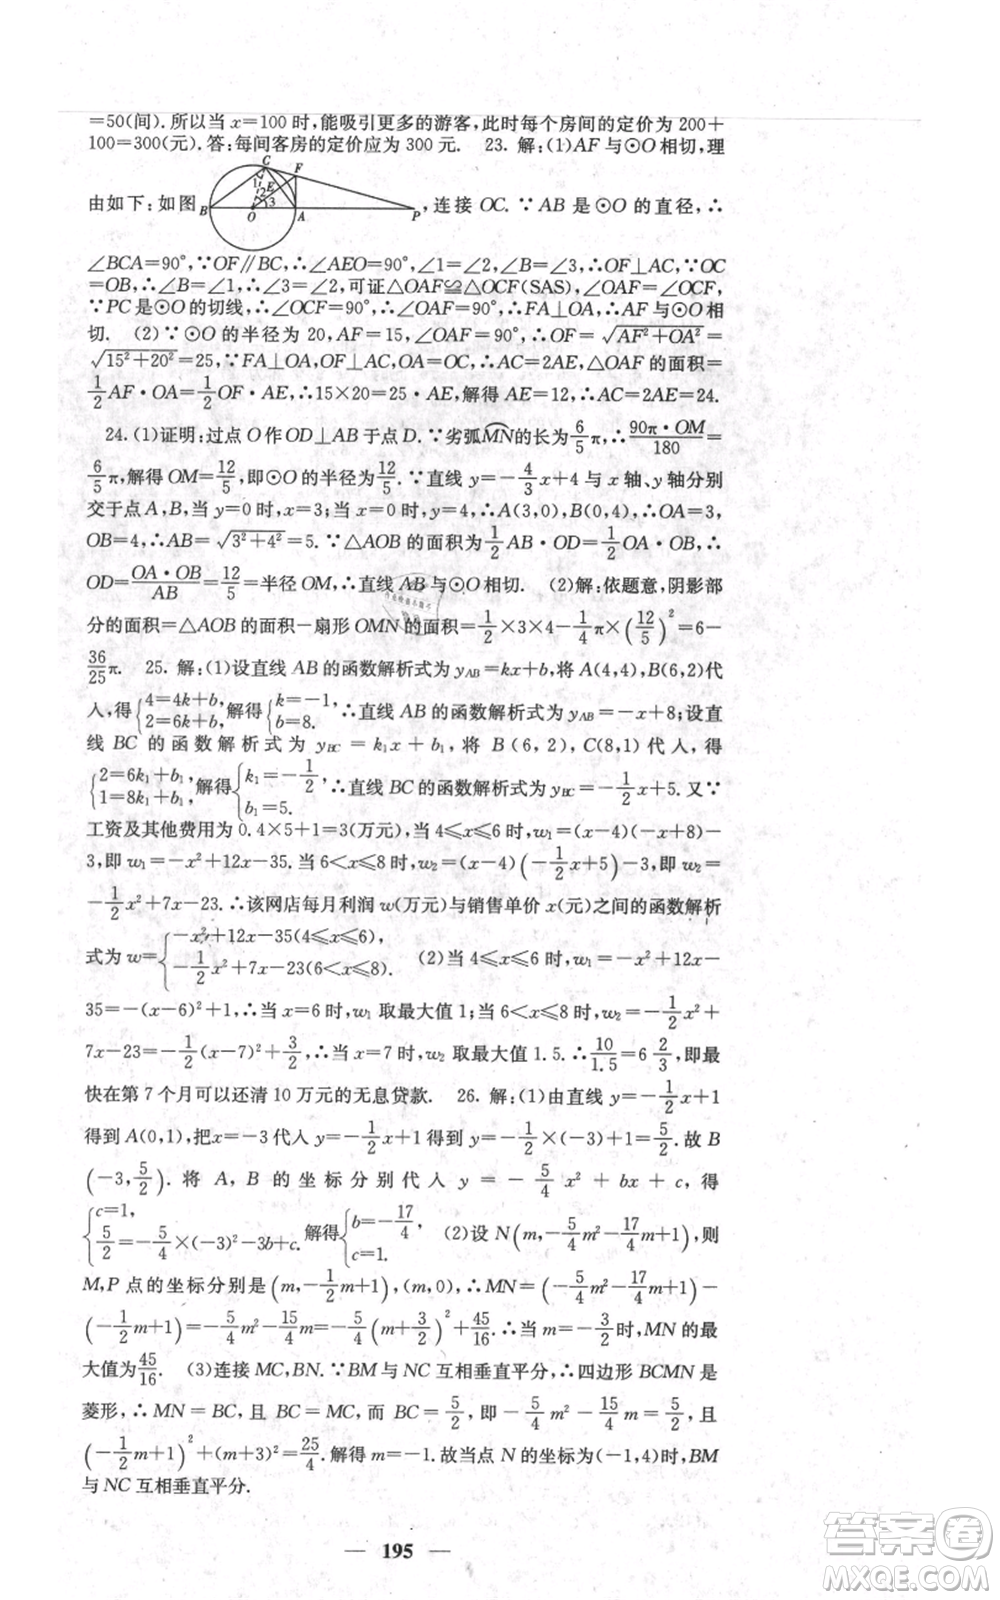 =50(间).所以当 x=100时,能吸引更多的游客,此时每个房间的定价为 200+
100=300(元).答:每间客房的定价应为 300 元. 23. 解:(1)AF 与⊙O 相切,理
C F 1 2 E 3 B O A P
由如下:如图 ,连接 OC.∵AB 是⊙O 的直径,∴
∠BCA=90°,∵OF∥BC,∴∠AEO=90°,∠1=∠2,∠B=∠3,∴OF⊥AC,∵OC
=OB,∴∠B=∠1,∴∠3=∠2,可证△OAF≌△OCF(SAS),∴∠OAF=∠OCF,
∵PC 是⊙O 的切线,∴∠OCF=90°,∴∠OAF=90°,∴FA⊥OA,∴AF 与⊙O 相
切. (2)∵⊙O 的半径为 20,AF=15,∠OAF=90°,∴OF=√(AF²+OA²)=
√(15²+20²)=25,∵FA⊥OA,OF⊥AC,OA=OC,∴AC=2AE,△OAF 的面积=
1/2 AF·OA=1/2 OF·AE,∴15×20=25·AE,解得 AE=12,∴AC=2AE=24.
24.(1)证明:过点 O 作 OD⊥AB 于点 D.∵劣弧MN的长为 6/5 π,∴ 90π·OM/180 =
6/5 π,解得 OM=12/5,即⊙O 的半径为 12/5.∵直线 y=-4/3 x+4 与 x 轴、y 轴分别
交于点 A,B,当 y=0 时,x=3;当 x=0 时,y=4,∴A(3,0),B(0,4),∴OA=3,
OB=4,∴AB=√(3²+4²)=5.∵△AOB 的面积=1/2 AB·OD=1/2 OA·OB,∴
OD=OA·OB/AB=12/5=半径 OM,∴直线 AB 与⊙O 相切. (2)解:依题意,阴影部
分的面积=△AOB 的面积-扇形 OMN 的面积=1/2×3×4-1/4 π×(12/5)²=6-
36/25 π. 25. 解:(1)设直线 AB 的函数解析式为 y_AB=kx+b,将 A(4,4),B(6,2)代
入,得{4=4k+b, 2=6k+b, 解得{k=-1, b=8. ∴直线 AB 的函数解析式为 y_AB=-x+8;设直
线 BC 的函数解析式为 y_BC=k₁x+b₁,将 B(6,2),C(8,1)代入,得
{2=6k₁+b₁, 1=8k₁+b₁, 解得{k₁=-1/2, b₁=5. ∴直线 BC 的函数解析式为 y_BC=-1/2 x+5.又∵
工资及其他费用为 0.4×5+1=3(万元),当 4≤x≤6 时,w₁=(x-4)(-x+8)-
3,即 w₁=-x²+12x-35.当 6<x≤8 时,w₂=(x-4)(-1/2 x+5)-3,即 w₂=
-1/2 x²+7x-23.∴该网店每月利润 w(万元)与销售单价 x(元)之间的函数解析
式为 w={-x²+12x-35(4≤x≤6), -1/2 x²+7x-23(6<x≤8). (2)当 4≤x≤6 时,w₁=-x²+12x-
35=-(x-6)²+1,∴当 x=6 时,w₁ 取最大值 1;当 6<x≤8 时,w₂=-1/2 x²+
7x-23=-1/2(x-7)²+3/2,∴当 x=7 时,w₂ 取最大值 1.5.∴10/1.5=6 2/3,即最
快在第 7 个月可以还清 10 万元的无息贷款. 26. 解:(1)由直线 y=-1/2 x+1
得到 A(0,1),把 x=-3 代入 y=-1/2 x+1 得到 y=-1/2×(-3)+1=5/2.故 B
(-3,5/2). 将 A,B 的坐标分别代入 y=-5/4 x²+bx+c,得
{c=1, 5/2=-5/4×(-3)²-3b+c. 解得{b=-17/4, c=1. (2)设 N(m,-5/4 m²-17/4 m+1),则
M,P 点的坐标分别是(m,-1/2 m+1),(m,0),∴MN=(-5/4 m²-17/4 m+1)-
(-1/2 m+1)=-5/4 m²-15/4 m=-5/4(m+3/2)²+45/16.∴当 m=-3/2时,MN 的最
大值为45/16. (3)连接 MC,BN.∵BM 与 NC 互相垂直平分,∴四边形 BCMN 是
菱形,∴MN=BC,且 BC=MC,而 BC=5/2,即-5/4 m²-15/4 m=5/2,且
(-1/2 m+1)²+(m+3)²=25/4.解得 m=-1.故当点 N 的坐标为(-1,4)时,BM
与 NC 互相垂直平分.
— 195 —
答案圈
MXQE.COM